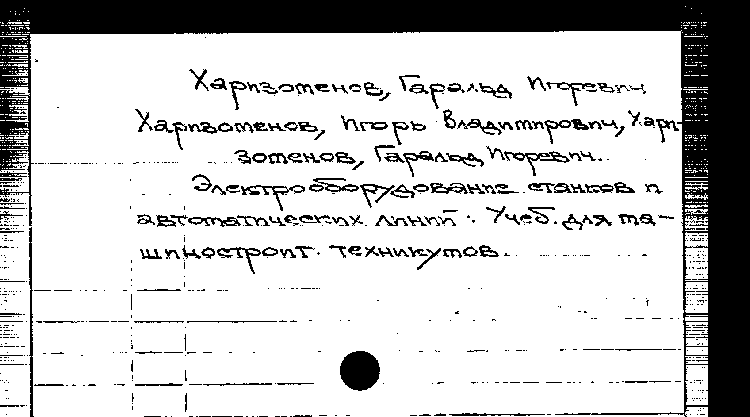 Харизоменов, Гаральд Игоревич
Харизоменов, Игорь Владимирович, Хари-
зоменов, Гаральд Игоревич.
Электрооборудование станков и
автоматических линий : Учеб. для ма-
шиностроит. техникумов.